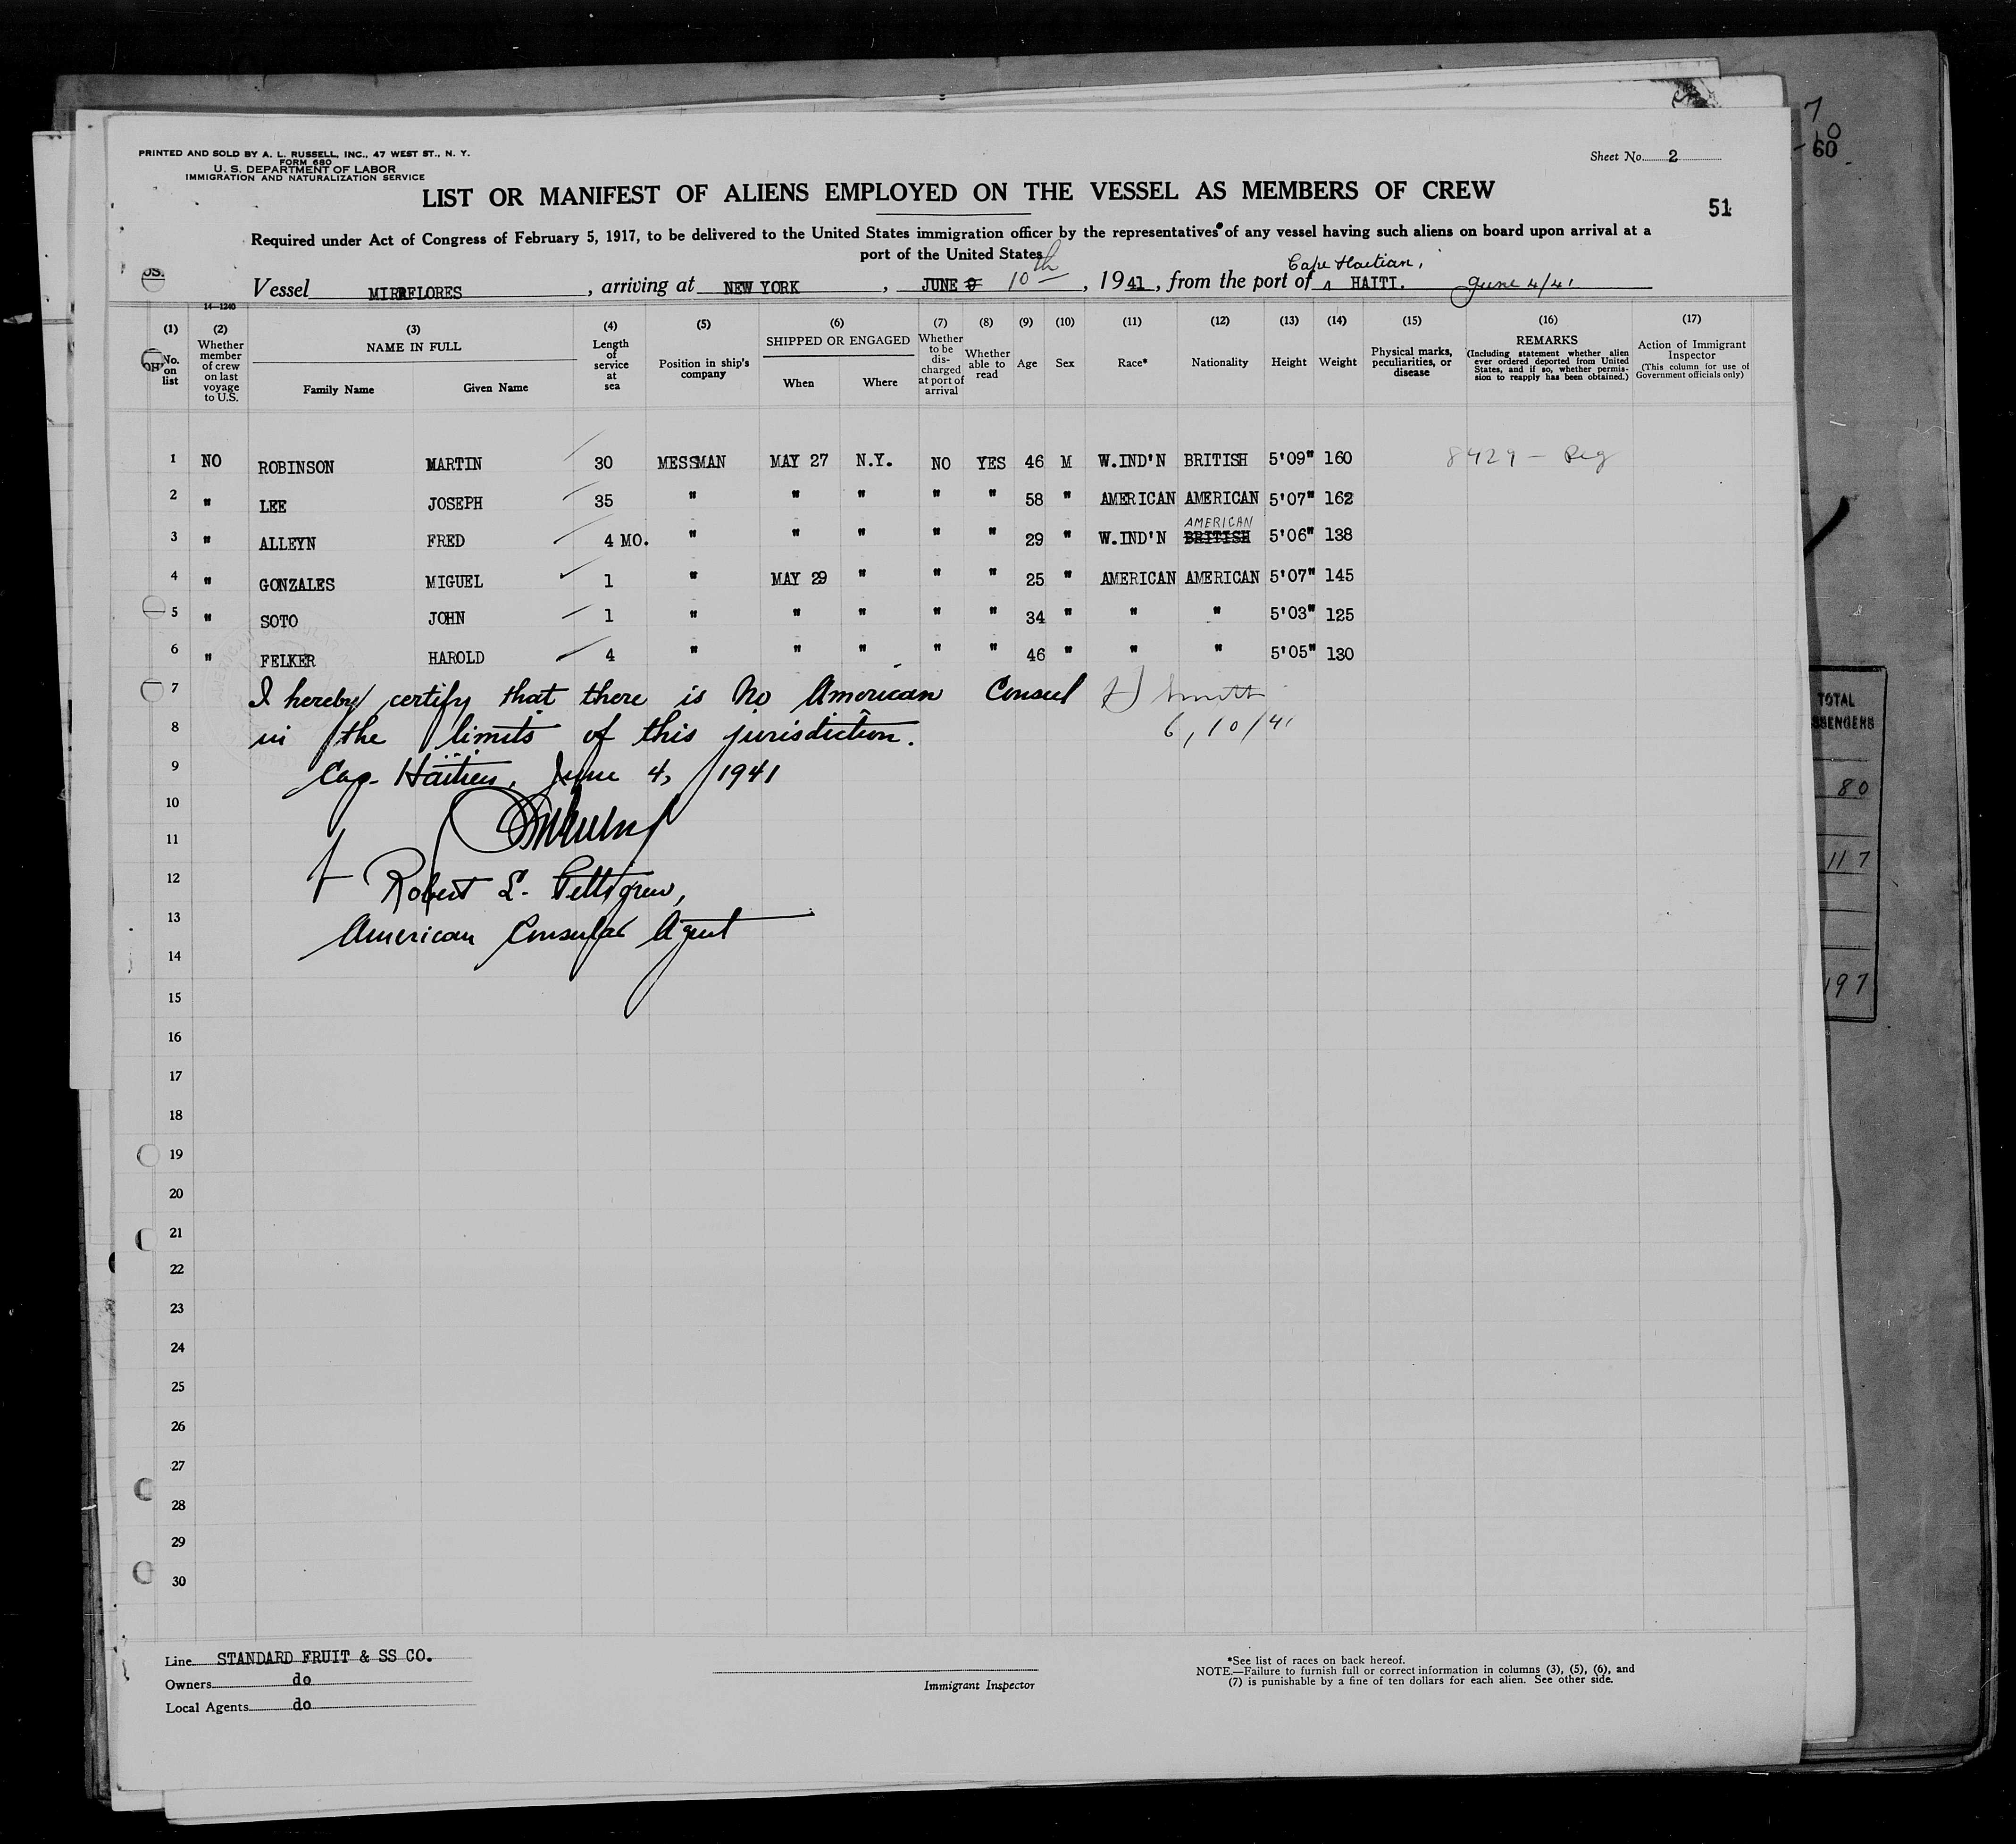 PRINTED AND SOLD BY A. L. RUSSELL, INC., 47 WEST ST., N. Y.
FORM 680
U. S. DEPARTMENT OF LABOR
IMMIGRATION AND NATURALIZATION SERVICE
Sheet No. 2
LIST OR MANIFEST OF ALIENS EMPLOYED ON THE VESSEL AS MEMBERS OF CREW
51
Required under Act of Congress of February 5, 1917, to be delivered to the United States immigration officer by the representatives of any vessel having such aliens on board upon arrival at a
port of the United States
Vessel MIRAFLORES, arriving at NEW YORK, JUNE 9 10th, 1941, from the port of Cape Haitian, HAITI. June 4/41
14-1240
(1) (2) (3) (4) (5) (6) (7) (8) (9) (10) (11) (12) (13) (14) (15) (16) (17)
No. on list
Whether member of crew on last voyage to U.S.
NAME IN FULL
Family Name Given Name
Length of service at sea
Position in ship's company
SHIPPED OR ENGAGED
When Where
Whether to be discharged at port of arrival
Whether able to read
Age Sex Race* Nationality Height Weight
Physical marks, peculiarities, or disease
REMARKS
(Including statement whether alien ever ordered deported from United States, and if so, whether permission to reapply has been obtained.)
Action of Immigrant Inspector
(This column for use of Government officials only)
1 NO ROBINSON MARTIN 30 MESSMAN MAY 27 N.Y. NO YES 46 M W.IND'N BRITISH 5'09" 160 8429 - Reg
2 " LEE JOSEPH 35 " " " " " 58 " AMERICAN AMERICAN 5'07" 162
3 " ALLEYN FRED 4 MO. " " " " " 29 " W.IND'N BRITISH AMERICAN 5'06" 138
4 " GONZALES MIGUEL 1 " MAY 29 " " " 25 " AMERICAN AMERICAN 5'07" 145
5 " SOTO JOHN 1 " " " " " 34 " " " 5'03" 125
6 " FELKER HAROLD 4 " " " " " 46 " " " 5'05" 130
7 I hereby certify that there is no American Consul Smith
8 in the limits of this jurisdiction. 6/10/41
9 Cap-Haïtien, June 4, 1941
10
11
12 Robert L. Pettigrew,
13 American Consular Agent
14
15
16
17
18
19
20
21
22
23
24
25
26
27
28
29
30
Line STANDARD FRUIT & SS CO.
Owners do
Local Agents do
Immigrant Inspector
*See list of races on back hereof.
NOTE.—Failure to furnish full or correct information in columns (3), (5), (6), and
(7) is punishable by a fine of ten dollars for each alien. See other side.
7
0
60
TOTAL
80
117
197